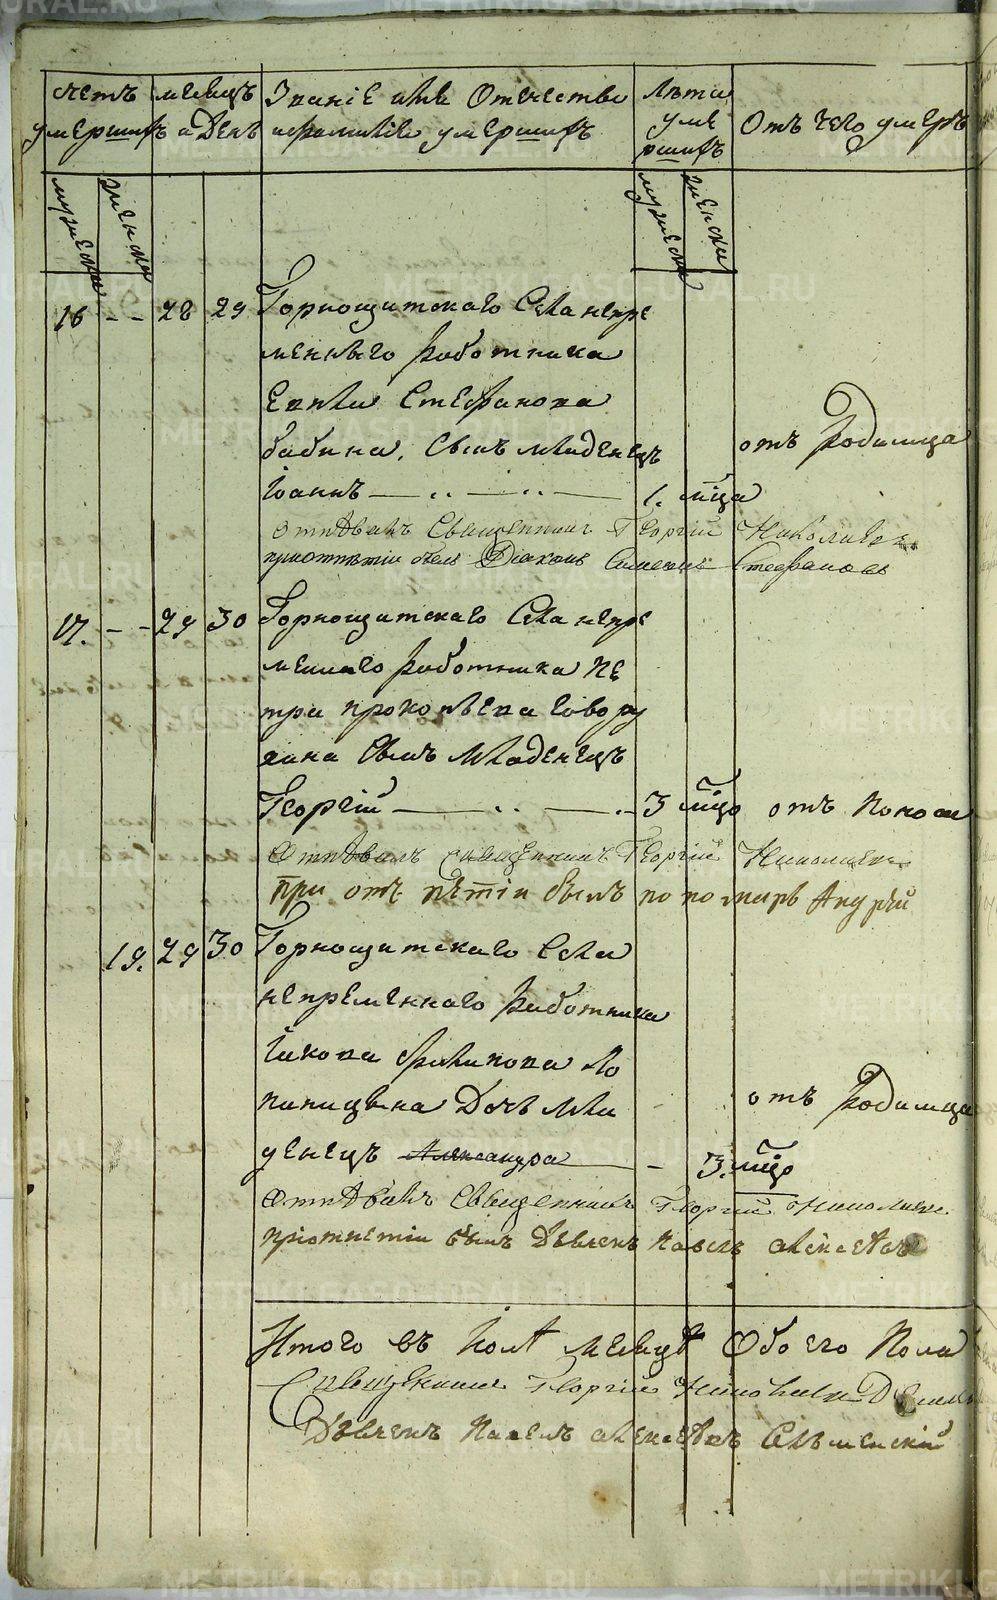 счетъ умершихъ
месяцъ и день
Званіе имя Отечество и фамиліе умершихъ
Лѣта умершихъ
Отъ чего умеръ
мужеска
женска
мужеска
женска
16 - - 28 29 Горнощитскаго Села непре
меннаго работника
Стефанова
бабина, сынъ младенецъ отъ родимца
Іоаннъ 1. мца
отпѣвалъ Священникъ Георгій Николаевъ
приотпѣтіи былъ Діаконъ Симеонъ Стефановъ
17. - - 29 30 Горнощитскаго Села непре
меннаго работника Пе
тра прокопьева Говору
хина сынъ младенецъ
Георгій 3 мцо отъ поноса
Отпѣвалъ священникъ Георгій Николаевъ
при отпѣтіи былъ пономарь Андрей
19. 29 30 Горнощитскаго Села
непременнаго работника
Іакова филипова Ло
Дочь мла отъ родимца
денецъ Александра 3. мцо
Отпѣвалъ Священникъ Георгій Николаевъ
приотпетіи былъ Дьячекъ Павелъ Алексеевъ
Итого въ іюлѣ месяцѣ Обоего пола
Священникъ Георгій Николаевъ
Дьячекъ Павелъ Алексеевъ
METRIKI.GASO-URAL.RU